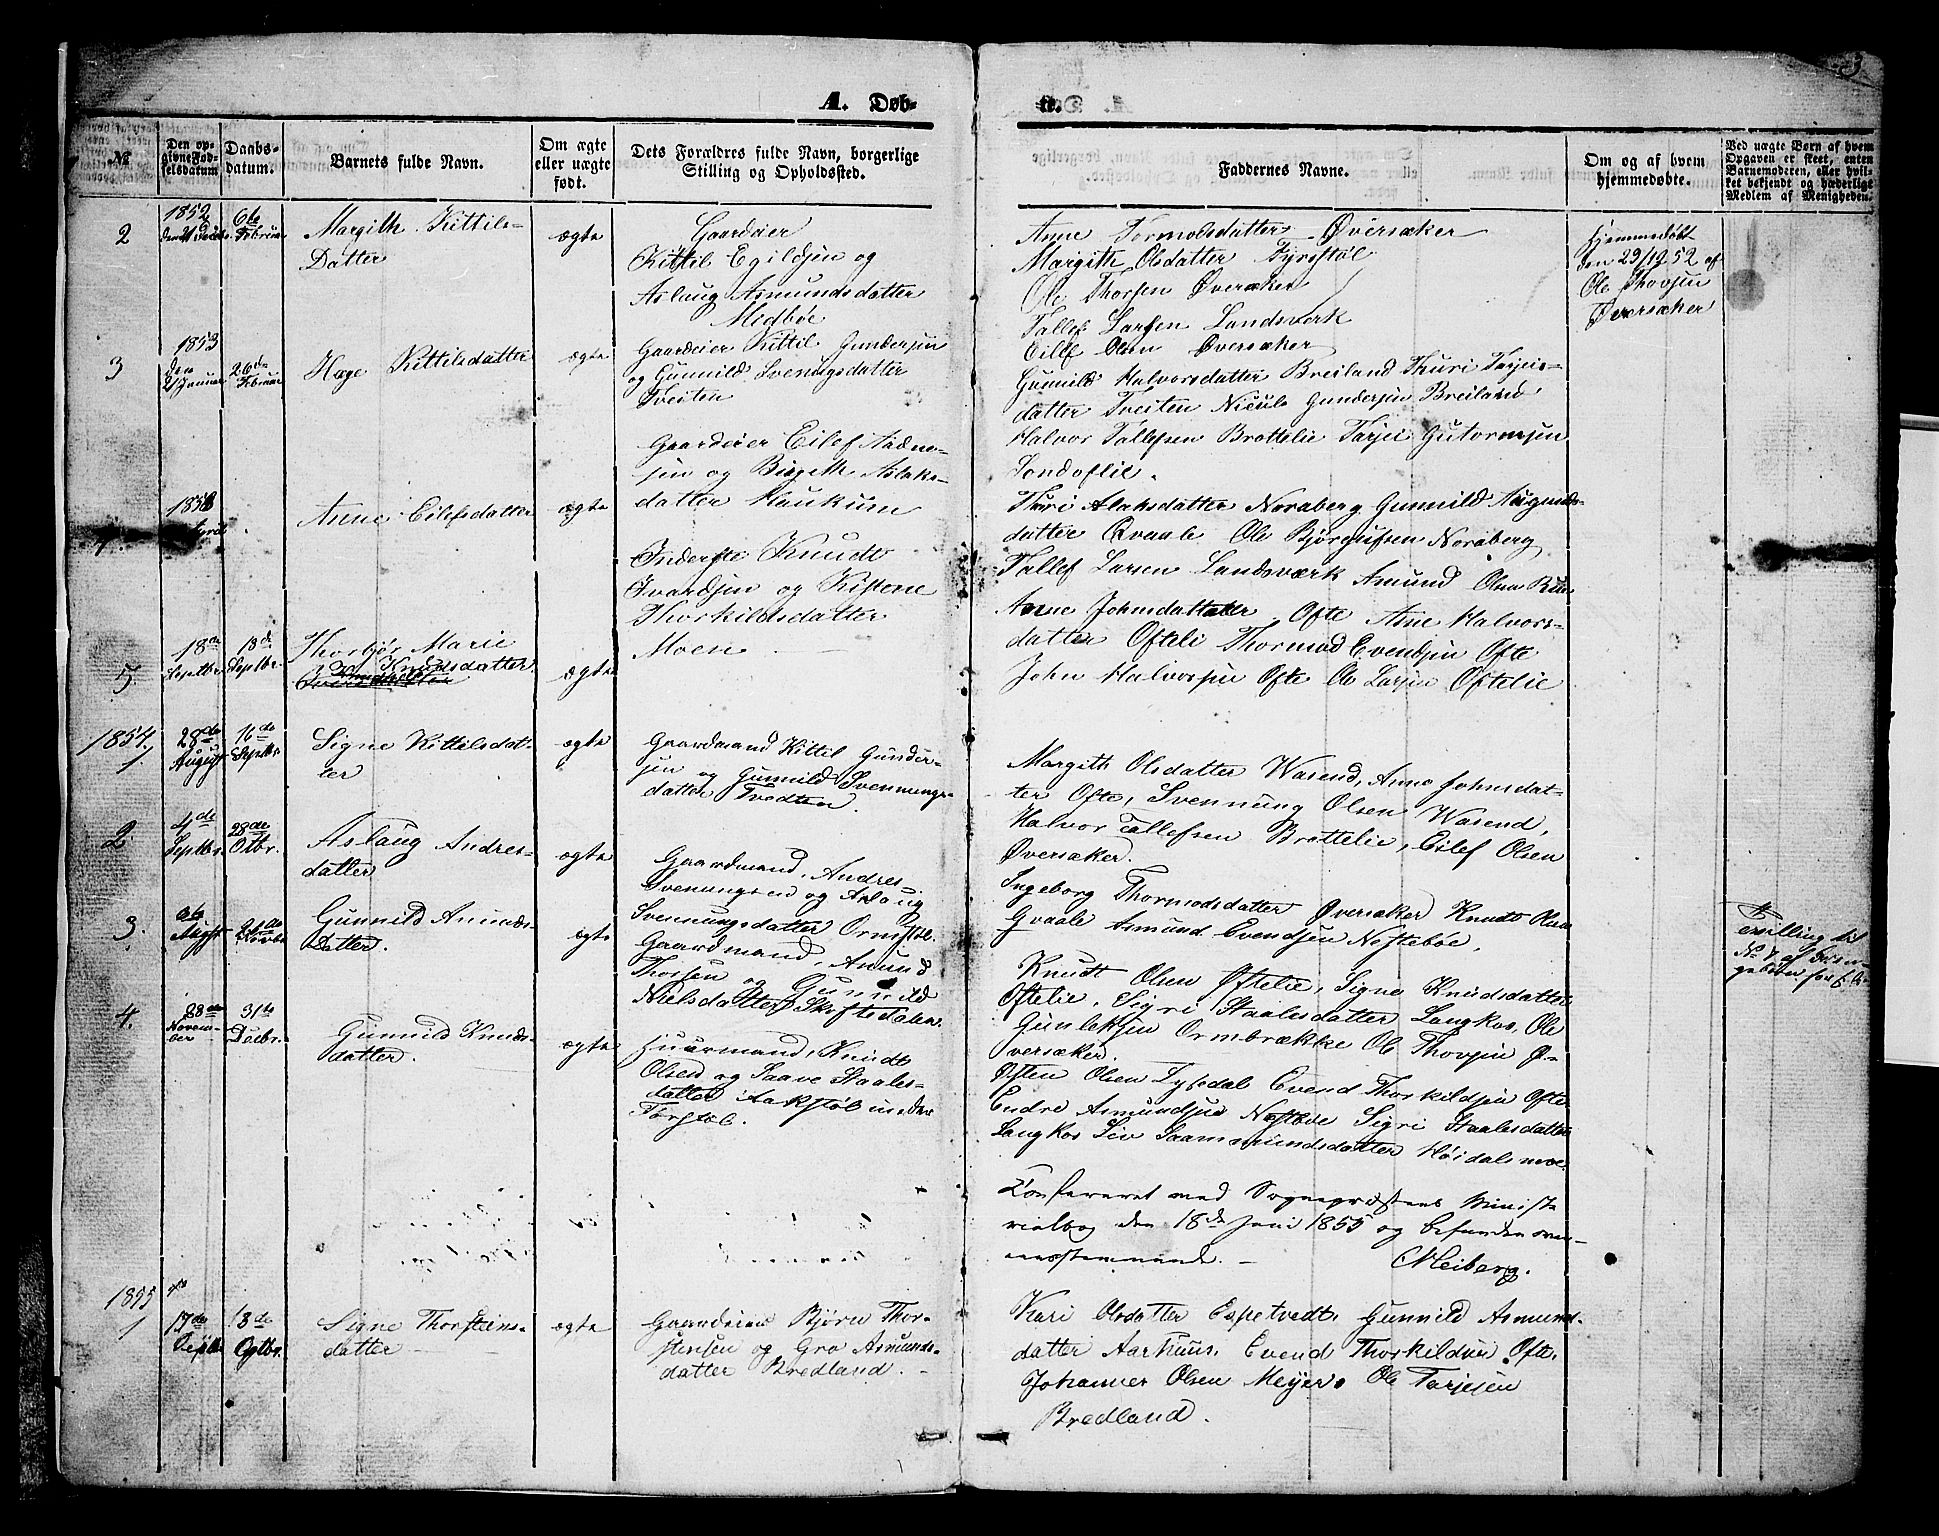 3
A. Døb-
te.
№
Den op-
givne Fød-
selsdatum
Daabs-
datum.
Barnets fulde Navn.
Om ægte
eller uægte
født.
Dets Forældres fulde Navn, borgerlige
Stilling og Opholdssted.
Faddernes Navne.
Om og af hvem
hjemmedøbte.
Ved uægte Børn af hvem
Opgaven er skeet, enten
Barnemoderen, eller hvil-
ket bekjendt og hæderlige
Medlem af Menigheden.
2
1852
den 21 Decbr.
6te
Februar
Margith Kittils-
Datter
ægte
Gaardeier
Kittil Egildsen og
Aslaug Asmundsdatter
Midbøe
Anne Tormodsdatter Øversaker
Margith Olsdatter Fyrestøl
Ole Thorsen Øversaker
Tallef Larsen Landsverk
Eilef Olsen Øversaker
Hjemmedøbt
den 29/12 52 af
Ole Thovsen
Øversaker
3
1853
den
21 Januar
26de
Februar
Hæge Kittilsdatter
ægte
Gaardeier Kittil Gundersen
og Gunnild Svenungsdatter
Tveiten
Gunnild Halvorsdatter Breiland Thuri Tarjeis-
datter Tveiten Niculs Gundersen Breiland
Halvor Tallefsen Brottelie Tarjei Gutormsen
Sondoflie.
4.
1853
Anne Eilefsdatter
ægte
Gaardeier Eilef Aadne-
sen og Birgith Aslaks-
datter Haukum
Thuri Alaksdatter Noraberg Gunnild Augunds-
datter Qvaale Ole Bjørgufsen Noraberg
Tallef Larsen Landsværk Amund Olsen
5.
18de
Septbr.
18de
Septbr.
Thorbjør Marie
Knudsdatter
ægte
Inderste Knudt
Ivardsen og Kistene
Thorkildsdatter
Moen
Anne Johnsdatter Ofte Anne Halvors-
datter Oftelie Thormod Evendsen Ofte
John Halvorsen Ofte Ole Larsen Oftelie
1854
1
28de
August
10de
Septbr.
Signe Kittilsdat-
ter
ægte
Gaardmand Kittil Gunder-
sen og Gunnild Svennungs-
datter Tvedten
Margith Olsdatter Warend, Anne Johnsdat-
ter Ofte, Svennung Olsen Warend,
Halvor Tallefsen Brottelie, Eilef Olsen
Øversaker.
2
4de
Septbr.
28de
Otbr.
Aslaug Andres-
datter
ægte
Gaardmand, Andres
Svenungsen og Aslaug
Svennungsdatter
Ingeborg Thormodsdatter Øversaker Knudt
Qvaale Asmund Evendsen Nestebøe.
3.
August
Gunnild Amunds-
Datter.
ægte
Gaardmand, Amund
Thorsen og Gunnild
Nielsdatter Skoftedalen
Knudt Olsen Oftelie, Signe Knudsdatter
Oftelie, Sigri Staalesdatter Langkos, Ole
Gunleksen Ormbrække Ole Thovsen Ø-
versaker.
Tvilling til
No 4
4.
28de
Novem-
ber
31te
Decbr.
Gunnild Knuds-
datter.
ægte
Huusmand, Knudt
Olsen og Saave Staales-
datter Aakstøl under
Torstøl.
Østen Olsen Lysedal Evend Thorkildsen Ofte
Endre Asmundsen Nestbøe Sigri Staalesdatter
Langkos Liv Saammundsdatter Høidalsmoe
Confereret med Sognepræstens Ministe
rialbog den 18de Juni 1855 og befunden over-
eensstemmende. –
CMeiberg.
1855
1
17de
Septbr.
18de
Octbr.
Signe Thorsteins-
datter
ægte
Gaardeier Bjørn Thor-
stensen og Gro Asmunds-
datter Bredland. –
Kari Olsdatter Espetvedt, Gunnild Asmund-
datter Aarhuus, Evend Thorkildsen Ofte,
Johannes Olsen Meyer, Ole Tarjesen
Bredland.